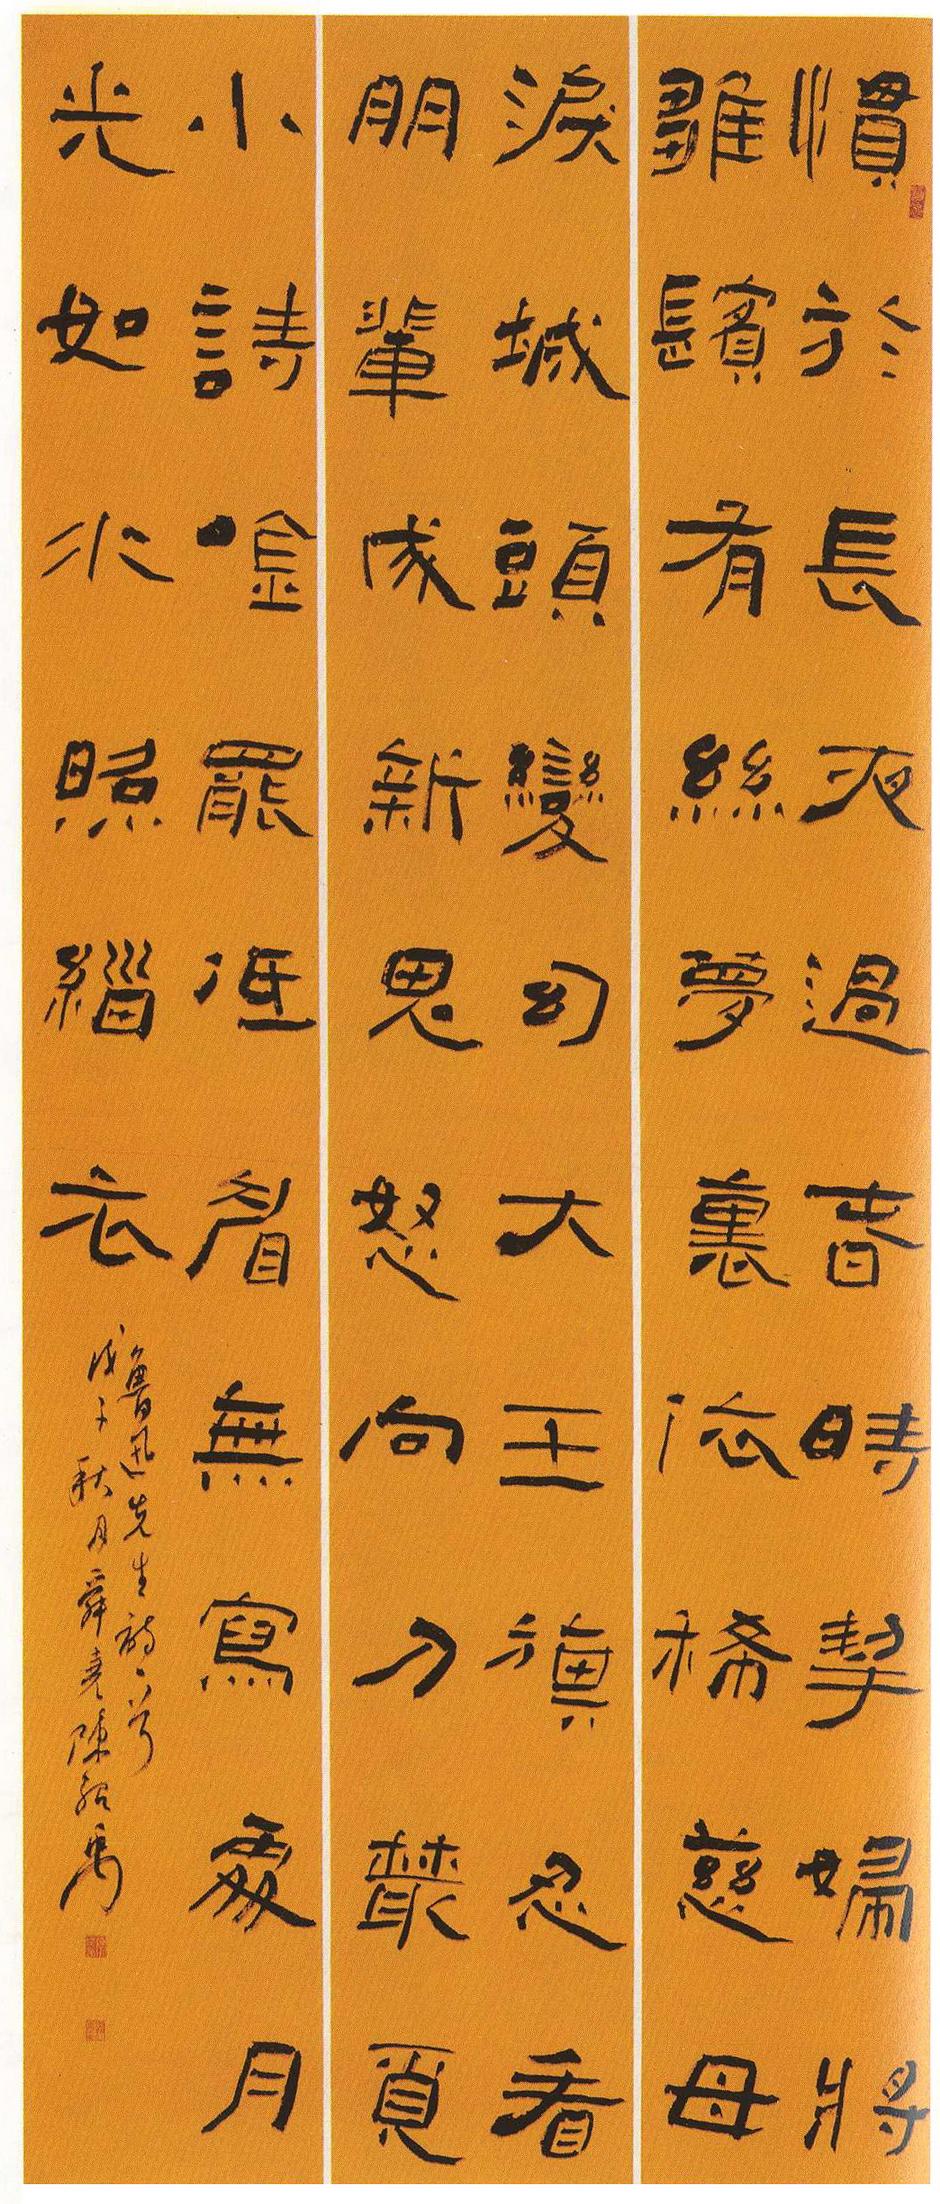 慣於長夜過春時挈婦將
雛鬢有絲夢裏依稀慈母
淚城頭變幻大王旗忍看
朋輩成新鬼怒向刀叢覓
小詩唫罷低眉無寫處月
光如水照緇衣
魯迅先生詩一首
戊子秋月舜堯陳紹禹